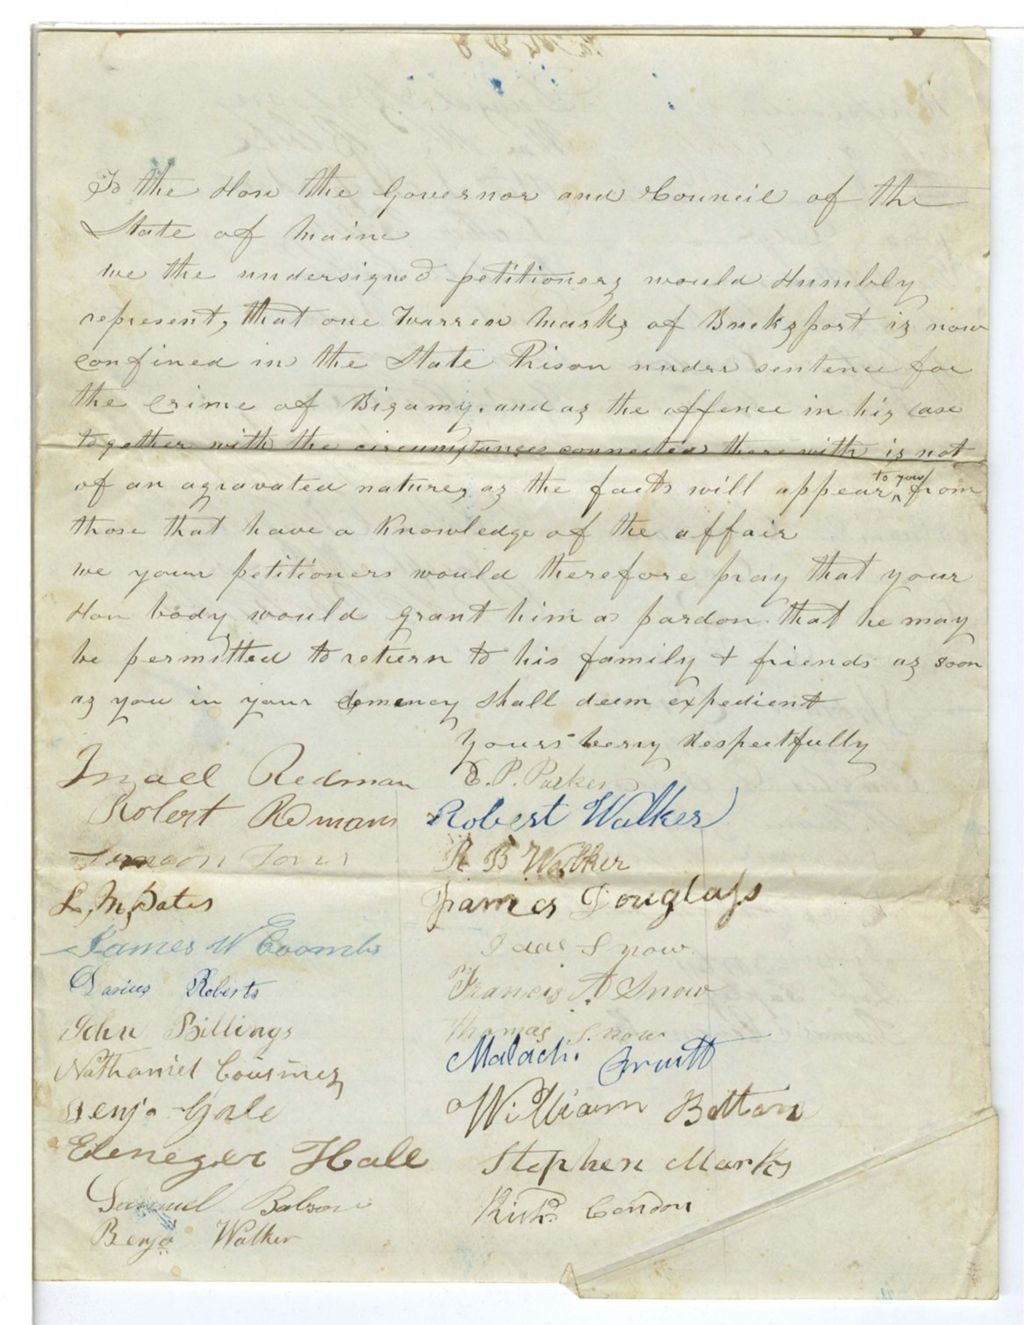 To the Hon the Governor and Council of the
State of Maine
we the undersigned petitioners would Humbly
represent, that one Warren Marks of Bucksport is now
confined in the State Prison under sentence for
the Crime of Bigamy. and as the offence in his case
together with the circumstances connected therewith is not
of an agravated nature, as the facts will appear to your from
those that have a Knowledge of the affair
we your petitioners would therefore pray that your
Hon body would grant him a pardon that he may
be permitted to return to his family & friends as soon
as you in your clemency shall deem expedient
yours verry Respectfully
Redman P. Parker
Robert Robert Walker
R B Walker
L, M, Bates James Douglass
James W Coombs Snow
Darius Roberts Francis A Snow
John Billings Thomas Snow
Nathaniel Malachi
Benja William
Ebenezer Hall Stephen Marks
Samuel Richd Condon
Benja Walker